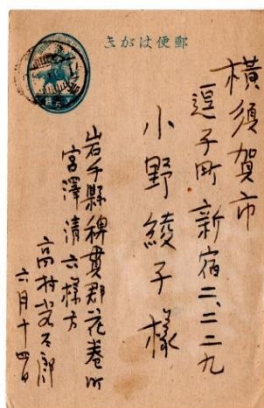 郵便はがき
横須賀市
逗子町新宿二、二二九
小野綾子様
岩手縣稗貫郡花巻町
宮澤清六様方
高村光太郎
六月十四日